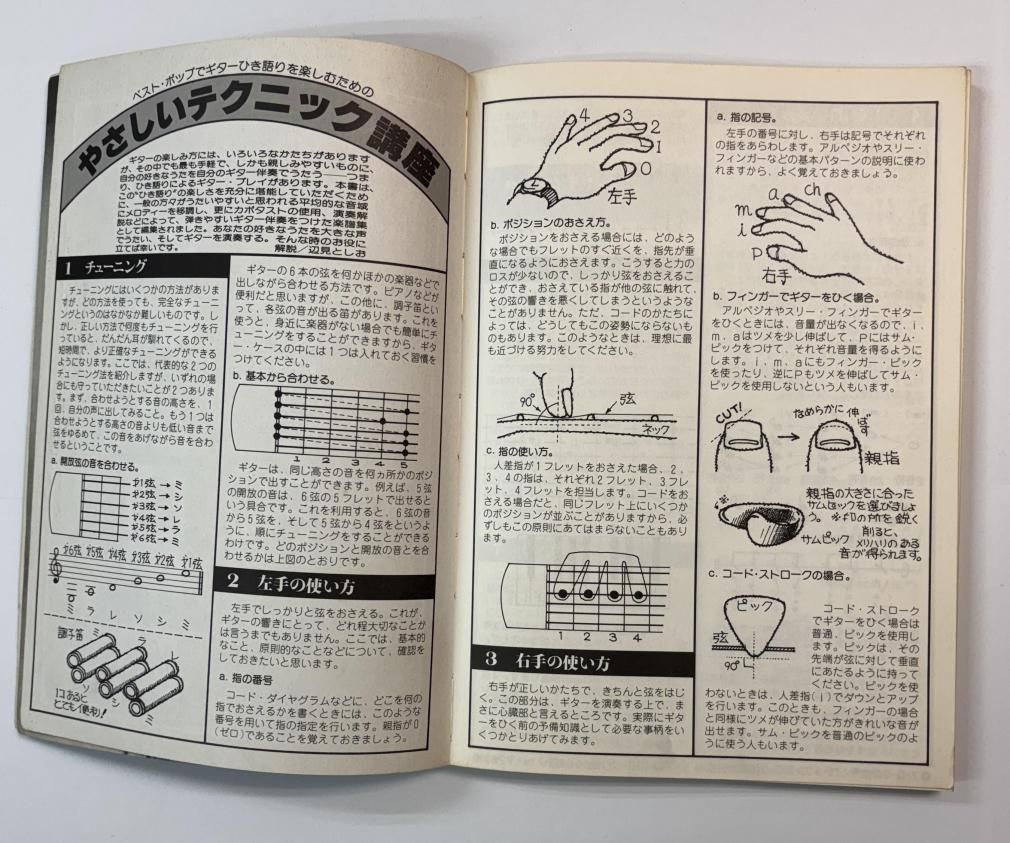 ベスト・ポップでギターひき語りを楽しむための
やさしいテクニック講座
ギターの楽しみ方には、いろいろなかたちがあります
が、その中でも最も手軽で、しかも親しみやすいものに、
自分の好きなうたを自分のギター伴奏でうたう――つま
り、ひき語りによるギター・プレイがあります。本書は、
この“ひき語り”の楽しさを充分に堪能していただくため
に、一般の方々がうたいやすいと思われる平均的な音域
にメロディーを移調し、更にカポタストの使用、演奏解
説などによって、弾きやすいギター伴奏をつけた楽譜集
として編集されました。あなたの好きなうたを大きな声
でうたい、そしてギターを演奏する。そんな時のお役に
立てば幸いです。 解説/辺見としお
1 チューニング
チューニングにはいくつかの方法があります
が、どの方法を使っても、完全なチューニ
ングというのはなかなか難しいものです。し
かし、正しい方法で何度もチューニングを行
っていると、だんだん耳が馴れてくるので、
短時間で、より正確なチューニングができる
ようになります。ここでは、代表的な2つの
チューニング法を紹介しますが、いずれの場
合にも守っていただきたいことが2つありま
す。まず、合わせようとする音の高さを、1
回、自分の声に出してみること。もう1つは
合わせようとする高さの音よりも低い音まで
弦をゆるめて、この音をあげながら音を合わ
せるということです。
a. 開放弦の音を合わせる。
オ1弦→ミ
オ2弦→シ
オ3弦→ソ
オ4弦→レ
オ5弦→ラ
オ6弦→ミ
オ6弦 オ5弦 オ4弦 オ3弦 オ2弦 オ1弦
ミ ラ レ ソ シ ミ
調子笛
ミ
ラ
レ
ソ
シ
ミ
1コあると
とても便利!
ギターの6本の弦を何かほかの楽器などで
出しながら合わせる方法です。ピアノなどが
便利だと思いますが、この他に、調子笛とい
って、各弦の音が出る笛があります。これを
使うと、身近に楽器がない場合でも簡単にチ
ューニングをすることができますから、ギタ
ー・ケースの中には1つは入れておく習慣を
つけてください。
b. 基本から合わせる。
1 2 3 4 5
ギターは、同じ高さの音を何ヵ所かのポジ
ションで出すことができます。例えば、5弦
の開放の音は、6弦の5フレットで出せると
いう具合です。これを利用すると、6弦の音
から5弦を、そして5弦から4弦をというよう
に、順にチューニングをすることができる
わけです。どのポジションと開放の音とを合
わせるかは上図のとおりです。
2 左手の使い方
左手でしっかりと弦をおさえる。これが、
ギターの響きにとって、どれ程大切なことか
は言うまでもありません。ここでは、基本的
なこと、原則的なことなどについて、確認を
しておきたいと思います。
a. 指の番号
コード・ダイヤグラムなどに、どこを何の
指でおさえるかを書くときには、このような
番号を用いて指の指定を行います。親指が0
(ゼロ)であることを覚えておきましょう。
4
3
2
1
0
左手
b. ポジションのおさえ方。
ポジションをおさえる場合には、どのよう
な場合でもフレットのすぐ近くを、指先が垂
直になるようにおさえます。こうすると力の
ロスが少ないので、しっかり弦をおさえるこ
とができ、おさえている指が他の弦に触れて、
その弦の響きを悪くしてしまうというような
ことがありません。ただ、コードのかたちに
よっては、どうしてもこの姿勢にならないも
のもあります。このようなときは、理想に最
も近づける努力をしてください。
90°
弦
ネック
c. 指の使い方。
人差指が1フレットをおさえた場合、2、
3、4の指は、それぞれ2フレット、3フレ
ット、4フレットを担当します。コードをお
さえる場合だと、同じフレット上にいくつか
のポジションが並ぶことがありますから、必
ずしもこの原則にあてはまらないこともあり
ます。
1 2 3 4
3 右手の使い方
右手が正しいかたちで、きちんと弦をはじ
く。この部分は、ギターを演奏する上で、ま
さに心臓部と言えるところです。実際にギタ
ーをひく前の予備知識として必要な事柄をい
くつかとりあげてみます。
a. 指の記号。
左手の番号に対し、右手は記号でそれぞれ
の指をあらわします。アルペジオやスリー・
フィンガーなどの基本パターンの説明に使わ
れますから、よく覚えておきましょう。
ch
a
m
i
p
右手
b. フィンガーでギターをひく場合。
アルペジオやスリー・フィンガーでギター
をひくときには、音量が出なくなるので、i、
m、aはツメを少し伸ばして、Pにはサム・
ピックをつけて、それぞれ音量を得るように
します。i、m、aにもフィンガー・ピック
を使ったり、逆にPもツメを伸ばしてサム・
ピックを使用しないという人もいます。
CUT!
なめらかに伸ばす
親指
親指の大きさに合った
サムピックを選びましょ
う。※印の所を鋭く
削ると、
メリハリのある
音が得られます。
サムピック
c. コード・ストロークの場合。
ピック
弦
90°
コード・ストローク
でギターをひく場合は
普通、ピックを使用し
ます。ピックは、その
先端が弦に対して垂直
にあたるように持って
ください。ピックを使
わないときは、人差指(i)でダウンとアップ
を行います。このときも、フィンガーの場合
と同様にツメが伸びていた方がきれいな音が
出せます。サム・ピックを普通のピックのよ
うに使う人もいます。